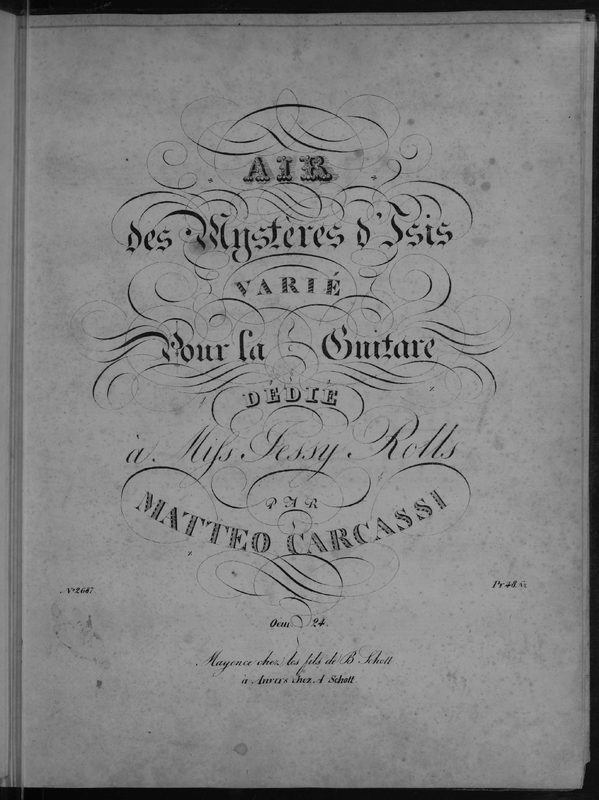 AIR
des Mystères d'Isis
VARIÉ
Pour la Guitare
DÉDIÉ
à Miss Jessy Rolls
PAR
MATTEO CARCASSI
No. 2647.
Pr 48 Xr
Oeuv 24.
Mayence chez les fils de B Schott
à Anvers chez A Schott.